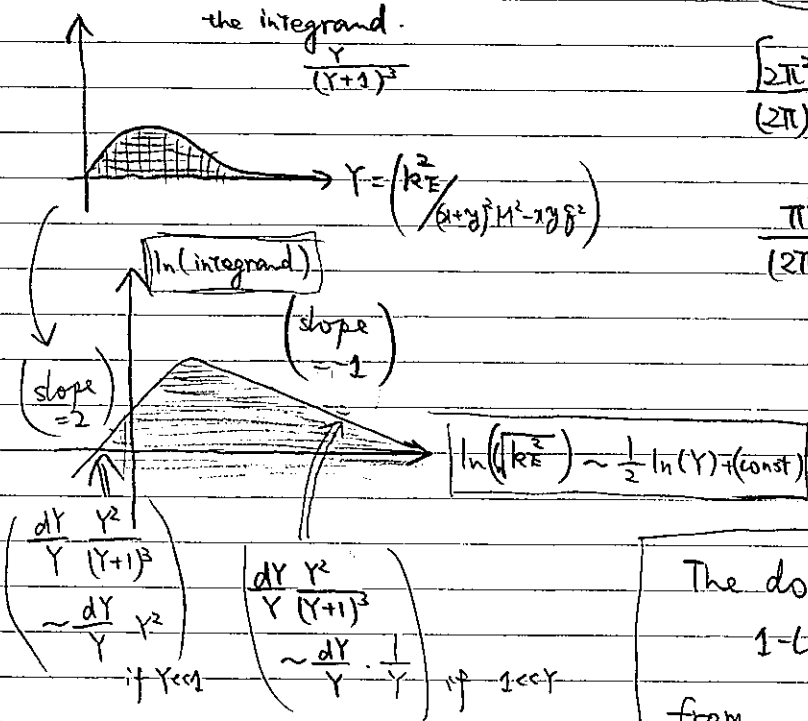 the integrand.
Y / (Y+1)³
Y = (k_E² / (x+y)²M² - xyq²)
[2π²
(2π)
ln(integrand)
(slope = -1)
(slope = 2)
π
(2π
ln(√k_E²) ~ ½ ln(Y) + (const)
(dY/Y Y²/(Y+1)³
~ dY/Y Y²)
if Y<<1
(dY/Y Y²/(Y+1)³
~ dY/Y · 1/Y) if 1<<Y
The do
1-L
from